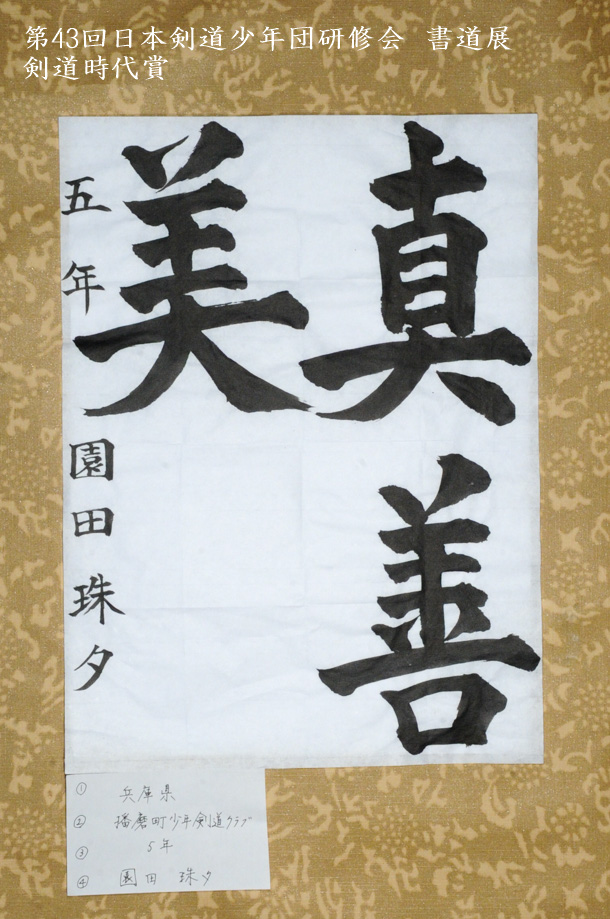 第43回日本剣道少年団研修会　書道展
剣道時代賞
真善
美
五年　園田珠夕
① 兵庫県
② 播磨町少年剣道クラブ
③ 5年
④ 園田 珠夕